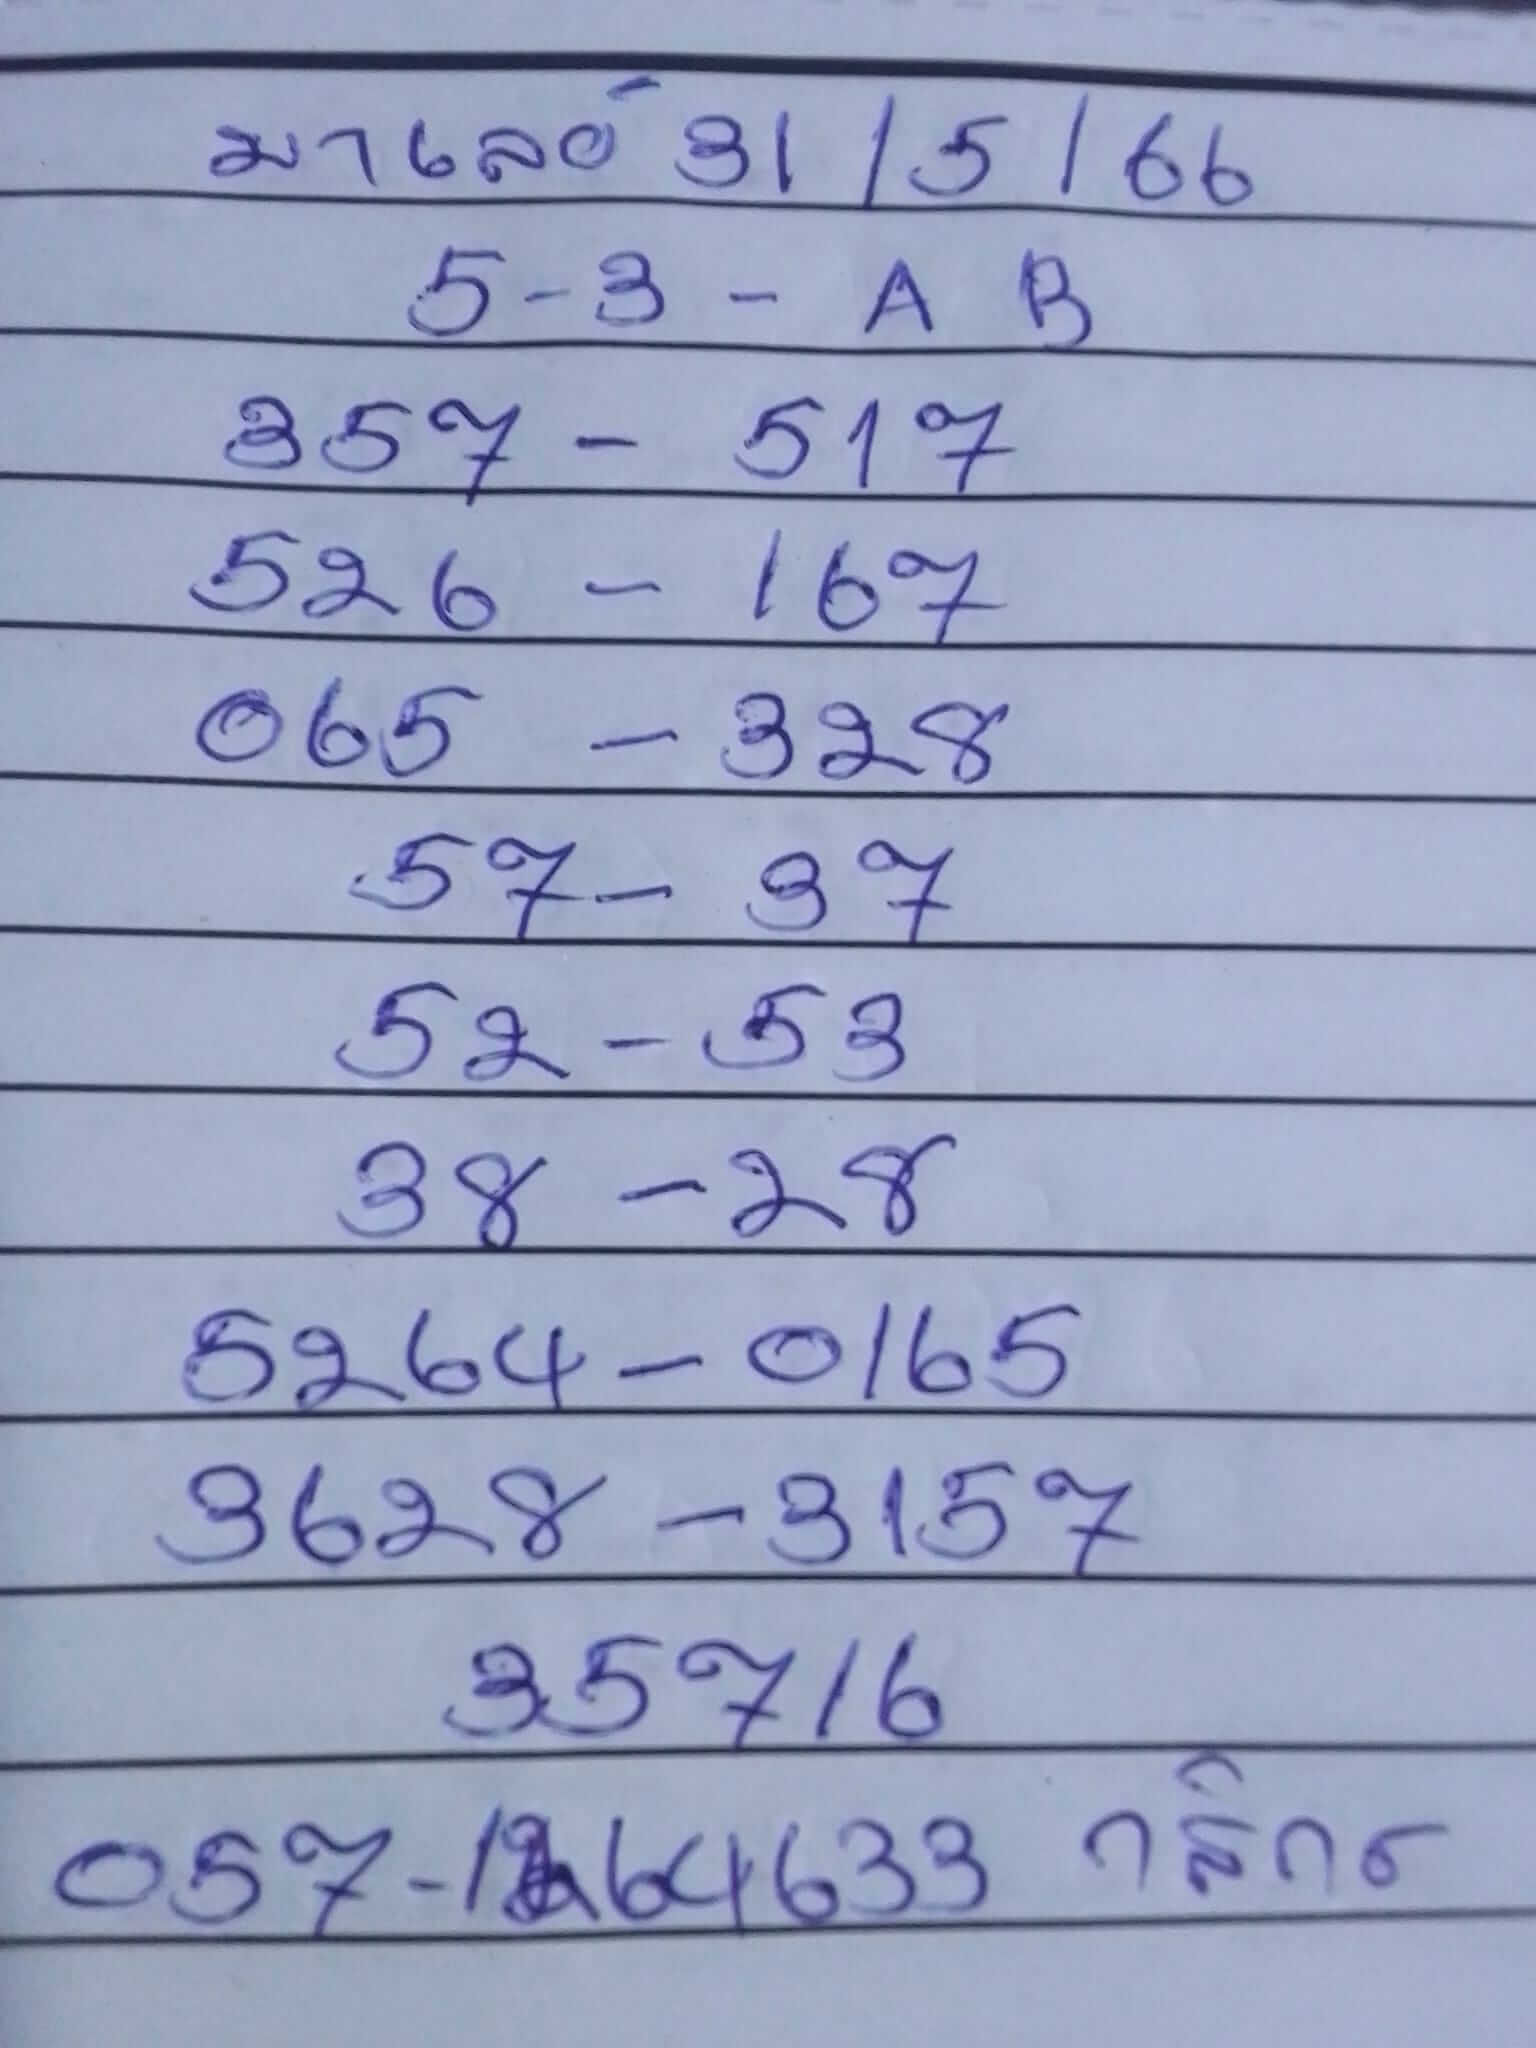 มาเลย์ 31/5/66
5-3 - A B
357 - 517
526 - 167
065 - 328
57 - 37
52 - 53
38 - 28
5264 - 0165
3628 - 3157
35716
057-1264633 กสิกร